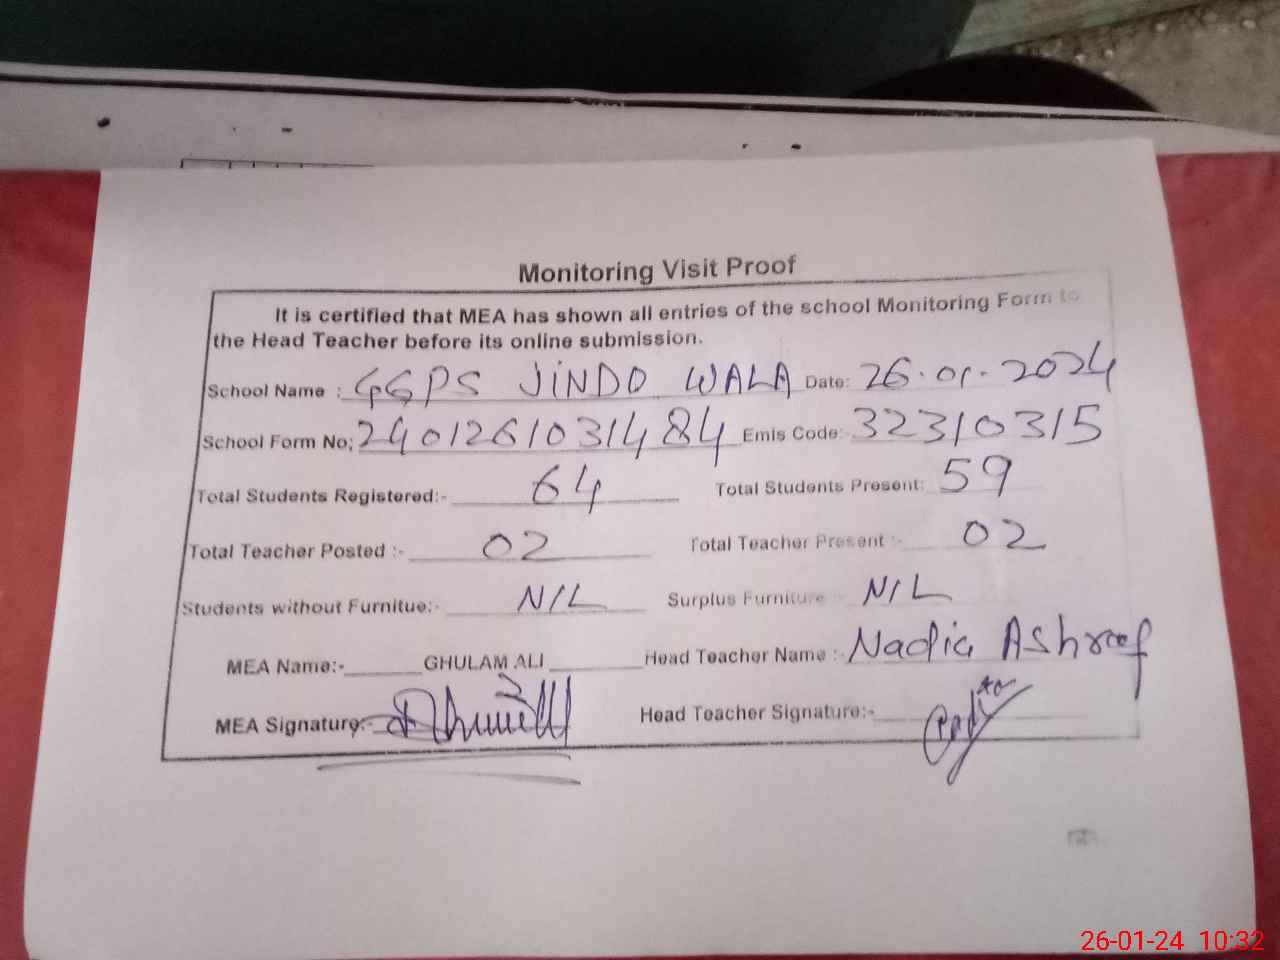 Monitoring Visit Proof
It is certified that MEA has shown all entries of the school Monitoring Form to
the Head Teacher before its online submission.
School Name : GGPS JINDO WALA Date: 26.01.2024
School Form No: 2401261031484 Emis Code:- 32310315
Total Students Registered:- 64 Total Students Present: 59
Total Teacher Posted :- 02 Total Teacher Present :- 02
Students without Furnitue:- NIL Surplus Furniture :- NIL
MEA Name:- GHULAM ALI Head Teacher Name :- Nadia Ashraf
MEA Signature:- Head Teacher Signature:-
26-01-24 10:32